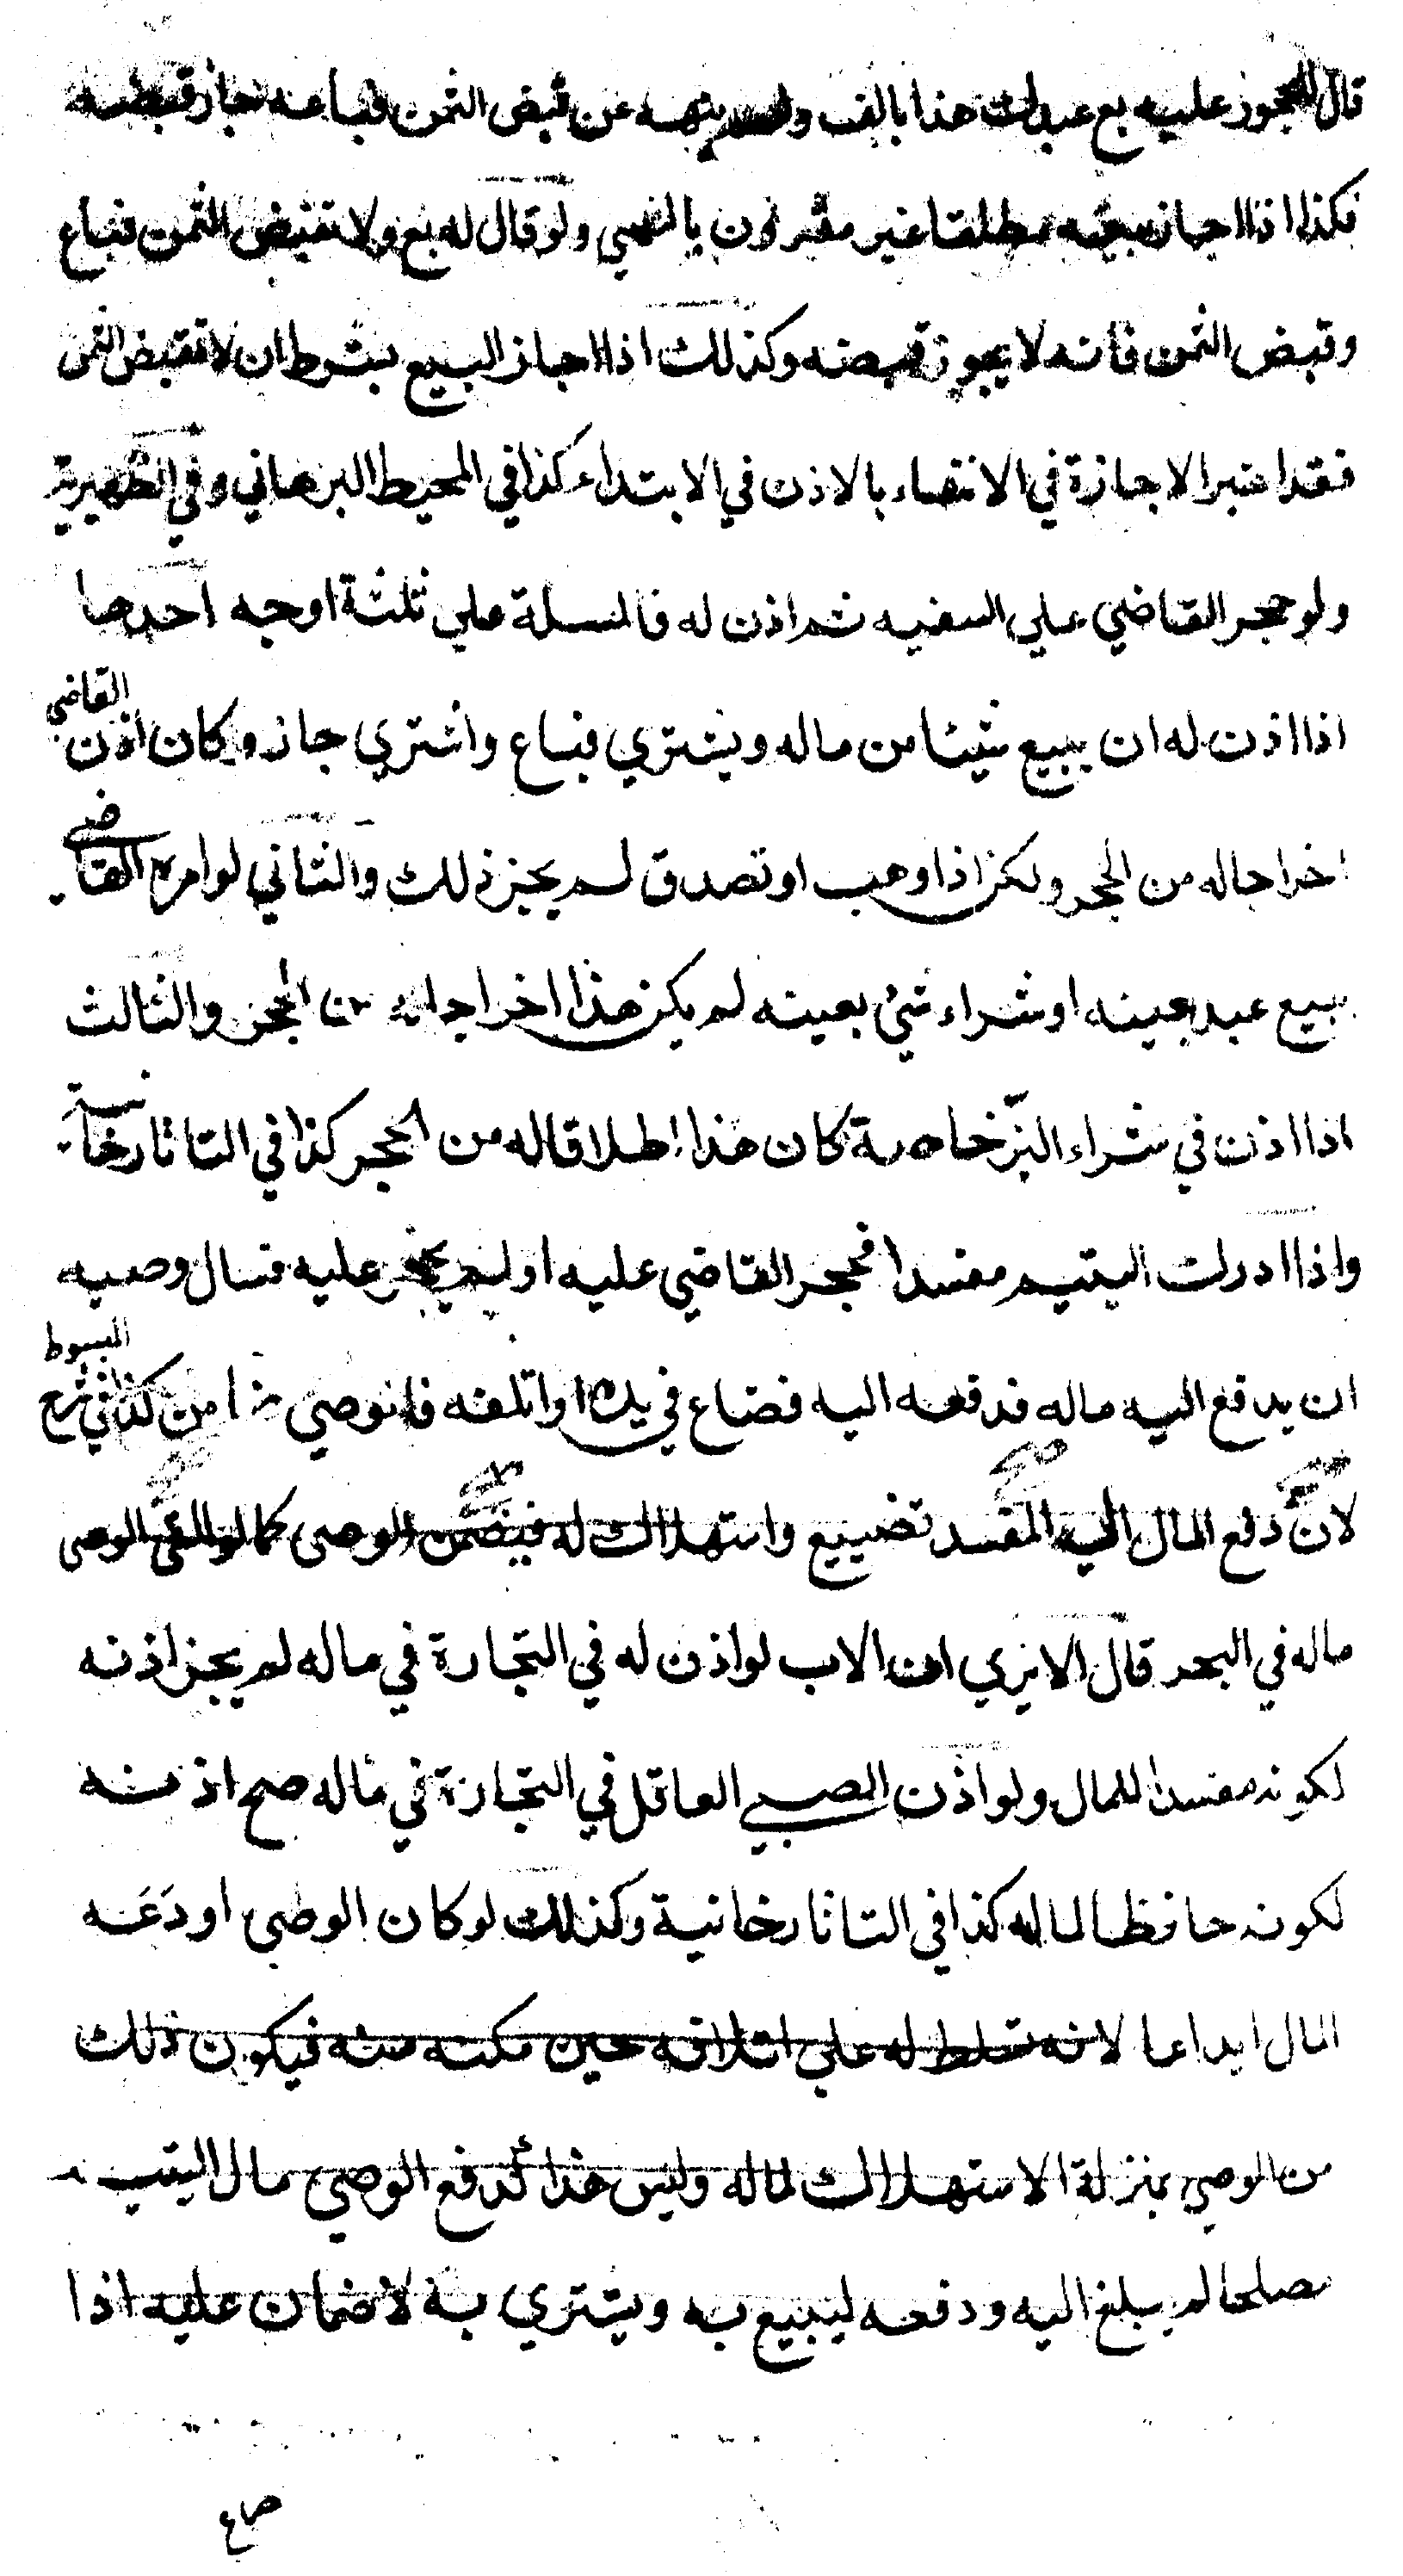 قال للمحجور عليه بع عبدك هذا بالف ولم ينهه عن قبض الثمن فباعه جاز قبضه
فكذا اذا اجاز بيعه مطلقا غير مقرون بالنهي ولو قال له بع ولا تقبض الثمن فباع
وقبض الثمن فانه لا يجوز قبضه وكذلك اذا اجاز البيع بشرط ان لا تقبض الثمن
فقد اعتبر الاجازة في الانتهاء بالاذن في الابتداء كذا في المحيط البرهاني وفي الظهيرية
ولو حجر القاضي علي السفيه ثم اذن له فالمسلة علي ثلثة اوجه احدها
اذا اذن له ان يبيع شيئا من ماله ويشتري فباع واشتري جاز وكان اذن القاضي
اخراجا له من الحجر ولكن اذا وهب او تصدق لم يجز ذلك والثاني لو امره القاضي
ببيع عبد بعينه او شراء شئ بعينه لم يكن هذا اخراجا له من الحجر والثالث
اذا اذن في شراء البزّ خاصة كان هذا اطلاقا له من الحجر كذا في التاتارخانية
واذا ادرك اليتيم مفسدا فحجر القاضي عليه او لم يحجر عليه فسال وصيه
ان يدفع اليه ماله فدفعه اليه فضاع في يده او اتلفه فالوصي ضامن كذا في شرح المبسوط
لان دفع المال الي المفسد تضييع واستهلاك له فيضمن الوصى كما لو القي الوصى
ماله في البحر قال الا يري ان الاب لو اذن له في التجارة في ماله لم يجز اذنه
لكونه مفسدا للمال ولو اذن الصبي العاقل في التجارة في ماله صح اذنه
لكونه حافظا لماله كذا في التاتارخانية وكذلك لو كان الوصي اودَعَه
المال ايداعا لانه تسلط له علي اتلافه حين مكنه منه فيكون ذلك
من الوصي بمنزلة الاستهلاك لماله وليس هذا كدفع الوصي مال اليتيم
مصلحا لم يبلغ اليه ودفعه ليبيع به ويشتري به لا ضمان عليه اذا
ضاع